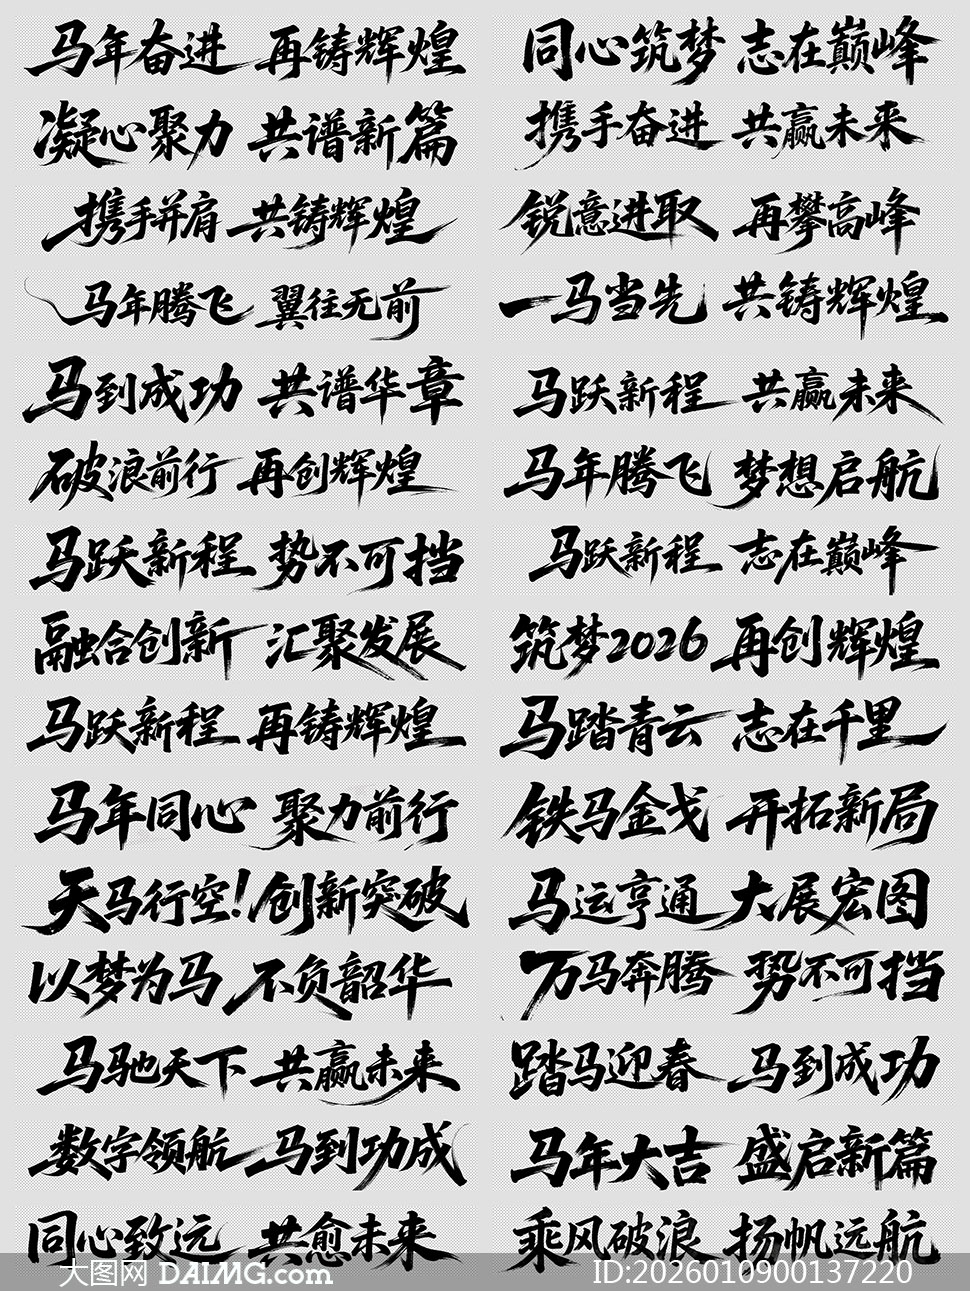 马年奋进 再铸辉煌
同心筑梦 志在巅峰
凝心聚力 共谱新篇
携手奋进 共赢未来
携手并肩 共铸辉煌
锐意进取 再攀高峰
马年腾飞 翼往无前
一马当先 共铸辉煌
马到成功 共谱华章
马跃新程 共赢未来
破浪前行 再创辉煌
马年腾飞 梦想启航
马跃新程 势不可挡
马跃新程 志在巅峰
融合创新 汇聚发展
筑梦2026 再创辉煌
马跃新程 再铸辉煌
马踏青云 志在千里
马年同心 聚力前行
铁马金戈 开拓新局
天马行空!创新突破
马运亨通 大展宏图
以梦为马 不负韶华
万马奔腾 势不可挡
马驰天下 共赢未来
踏马迎春 马到成功
数字领航 马到功成
马年大吉 盛启新篇
同心致远 共愈未来
乘风破浪 扬帆远航
大图网 DAIMG.com
ID:2026010900137220